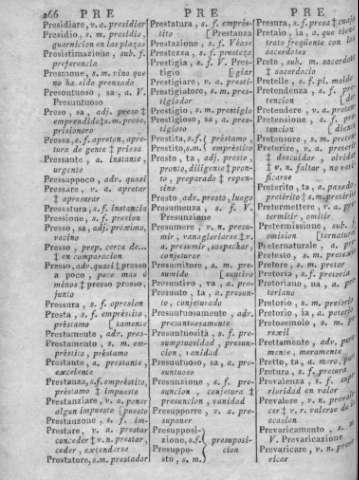 266 P R E P R E P R E
Presidiare, v. a. presidiar
Presidio, s. m. presidio,
guarnicion en las plazas
Presistimazione, sub. f.
preferencia
Presmone, s. m. vino que
no ha sido prensado
Presontuoso, sa, a. V.
Presuntuoso
Preso, sa, adj. preso ‡
emprendido ‡ s. m. preso,
prisionero
Pressa, s. f. apreton, apre-
tura de gente ‡ prisa
Pressante, a. instante,
urgente
Pressappoco, adv. quasi
Pressare, v. a. apretar
‡ apresurar
Pressatura, s. f. instancia
Pressione, s. f. presion
Presso, sa, adj. próximo,
vecino
Presso, prep. cerca de...
‡ en comparacion
Presso, adv. quasi ‡ presso
a poco, poco mas ó
ménos ‡ presso presso,
junto
Pressura, s. f. opresion
Presta, s. f. empréstito,
préstamo
Prestamente, adv. pres-
Prestamento, s. m. em-
préstito, préstamo
Prestante, a. prestante,
excelente
Prestanza, s. f. empréstito,
préstamo ‡ impuesto
Prestanziare, v. a. poner
algun impuesto
Prestanzone, s. f. im-
Prestare, v. a. prestar
conceder ‡ v. n. prestar,
ceder, extenderse
Prestatore, s. m. prestador
Prestatura, s. f. emprés-
tito [Prestanza
Prestazione, s. f. Véase
Prestezza, s. f. presteza
Prestigia, s. f. V. Pres-
tigio [giar
Prestigiare, v. a. presti-
Prestigiatore, s. m. pres-
tigiador
Prestigio, s. m. prestigio
Prestigioso, sa, a. pres-
tigioso
Prestita, s. f. { préstamo,
Prestito, s. m. { empréstito
Presto, ta, adj. presto,
pronto, diligente ‡ pron-
to, preparado ‡ repen-
tino
Presto, adv. presto, luego
Presumenza, s. f. V.
Presunzione
Presumere, v. n. presu-
mir, vanagloriarse ‡ v.
a. presumir, sospechar,
conjeturar
Presumitore, s. m. pre-
sumido
Presuntivo, va, a. presun-
Presunto, ta, a. presun-
to, conjeturado
Presuntuosamente, adv.
presuntuosamente
Presuntuosità, s. f. pre-
sumptuosidad, presun-
cion, vanidad
Presuntuoso, sa, a. pre-
suntuoso
Presunzione, s. f. pre-
suncion, conjetura ‡
presuncion, vanidad
Presupporre, v. a. pre-
suponer
Presupposi-
zione, s. f. { presuposi-
Presuppo- { cion
sto, s. m.
Presura, s. f. presa ‡
Pretaio, ia, a. que
trato freqüente con los
sacerdotes
Prete, sub. m. sacerdote
‡ sacerdocio
Pretelle, s. f. pl. molde
Pretendenza, s. f. pre-
tension
Pretendere, v. a. preten-
Pretensione, s. f. pre-
tension
Pretensore, s. m.
Preterire, v. a. preterir
‡ descuidar, olvidar
‡ v. n. faltar, no veri-
ficarse
Preterito, ta, a. pasado
pretérito ‡ s. m. pretérito
Pretermettere, v. a. per-
termitir, omitir
Pretermissione, sub. f.
omision
Preternaturale, a. pre-
Pretesto, s. m. pretexto
Pretore, s. m. pretor
Pretoria, s. f. pretoria
Pretoriano, na, a. pre-
toriano
Pretorio, s. m. pretorio
Pretorio, ia, a. pretorio
Pretosemolo, s. m.
perexil
Prettamente, adv. pura-
mente, meramente
Pretto, ta, a. mero, puro
Pretura, s. f. pretura
Prevalenza, s. f. supe-
rioridad en valor
Prevalere, v. n. preva-
cer ‡ v. r. valerse de la
ocasion
Prevaricamento, s. m.
V. Prevaricazione
Prevaricare, v. n. preva-
ricar